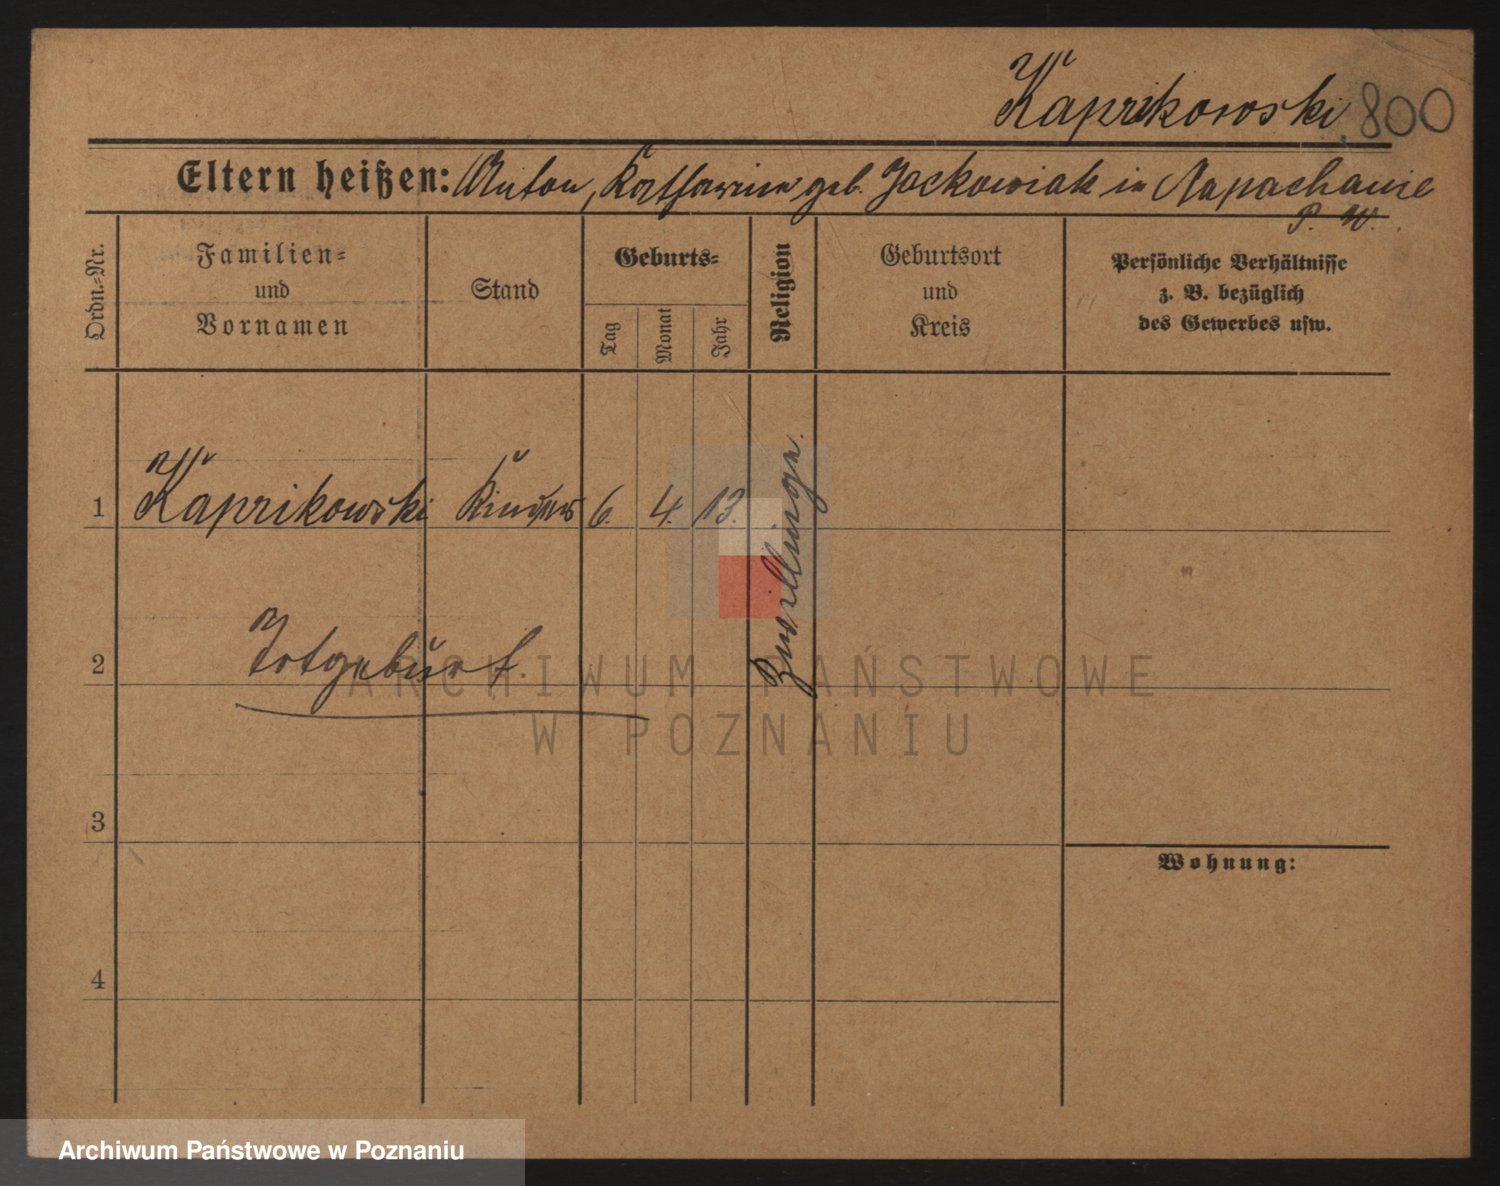 Kaprikowski. 800
Eltern heißen: Anton, Katharina geb. Jackowiak in Napachanie
P. W.
Ordn.-Nr.
Familien-
und
Vornamen
Stand
Geburts-
Tag
Monat
Jahr
Religion
Geburtsort
und
Kreis
Persönliche Verhältnisse
z. B. bezüglich
des Gewerbes usw.
1 Kaprikowski Kinder 6. 4. 13.
Zwillinge.
2 Totgeburt.
ARCHIWUM PAŃSTWOWE
W POZNANIU
3
Wohnung:
4
Archiwum Państwowe w Poznaniu